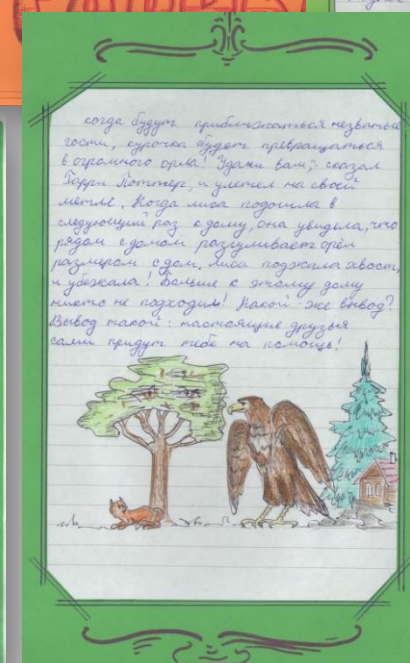 когда будут приближаться незваные
гости, курочка будет превращаться
в огромного орла! Удачи вам,": сказал
Гарри Поттер, и улетел на своей
метле. Когда лиса подошла в
следующий раз к дому, она увидела, что
рядом с домом разгуливает орёл
размером с дом. Лиса поджала хвост,
и убежала! Больше к этому дому
никто не подходил! Какой же вывод?
Вывод такой: настоящие друзья
сами придут тебе на помощь!